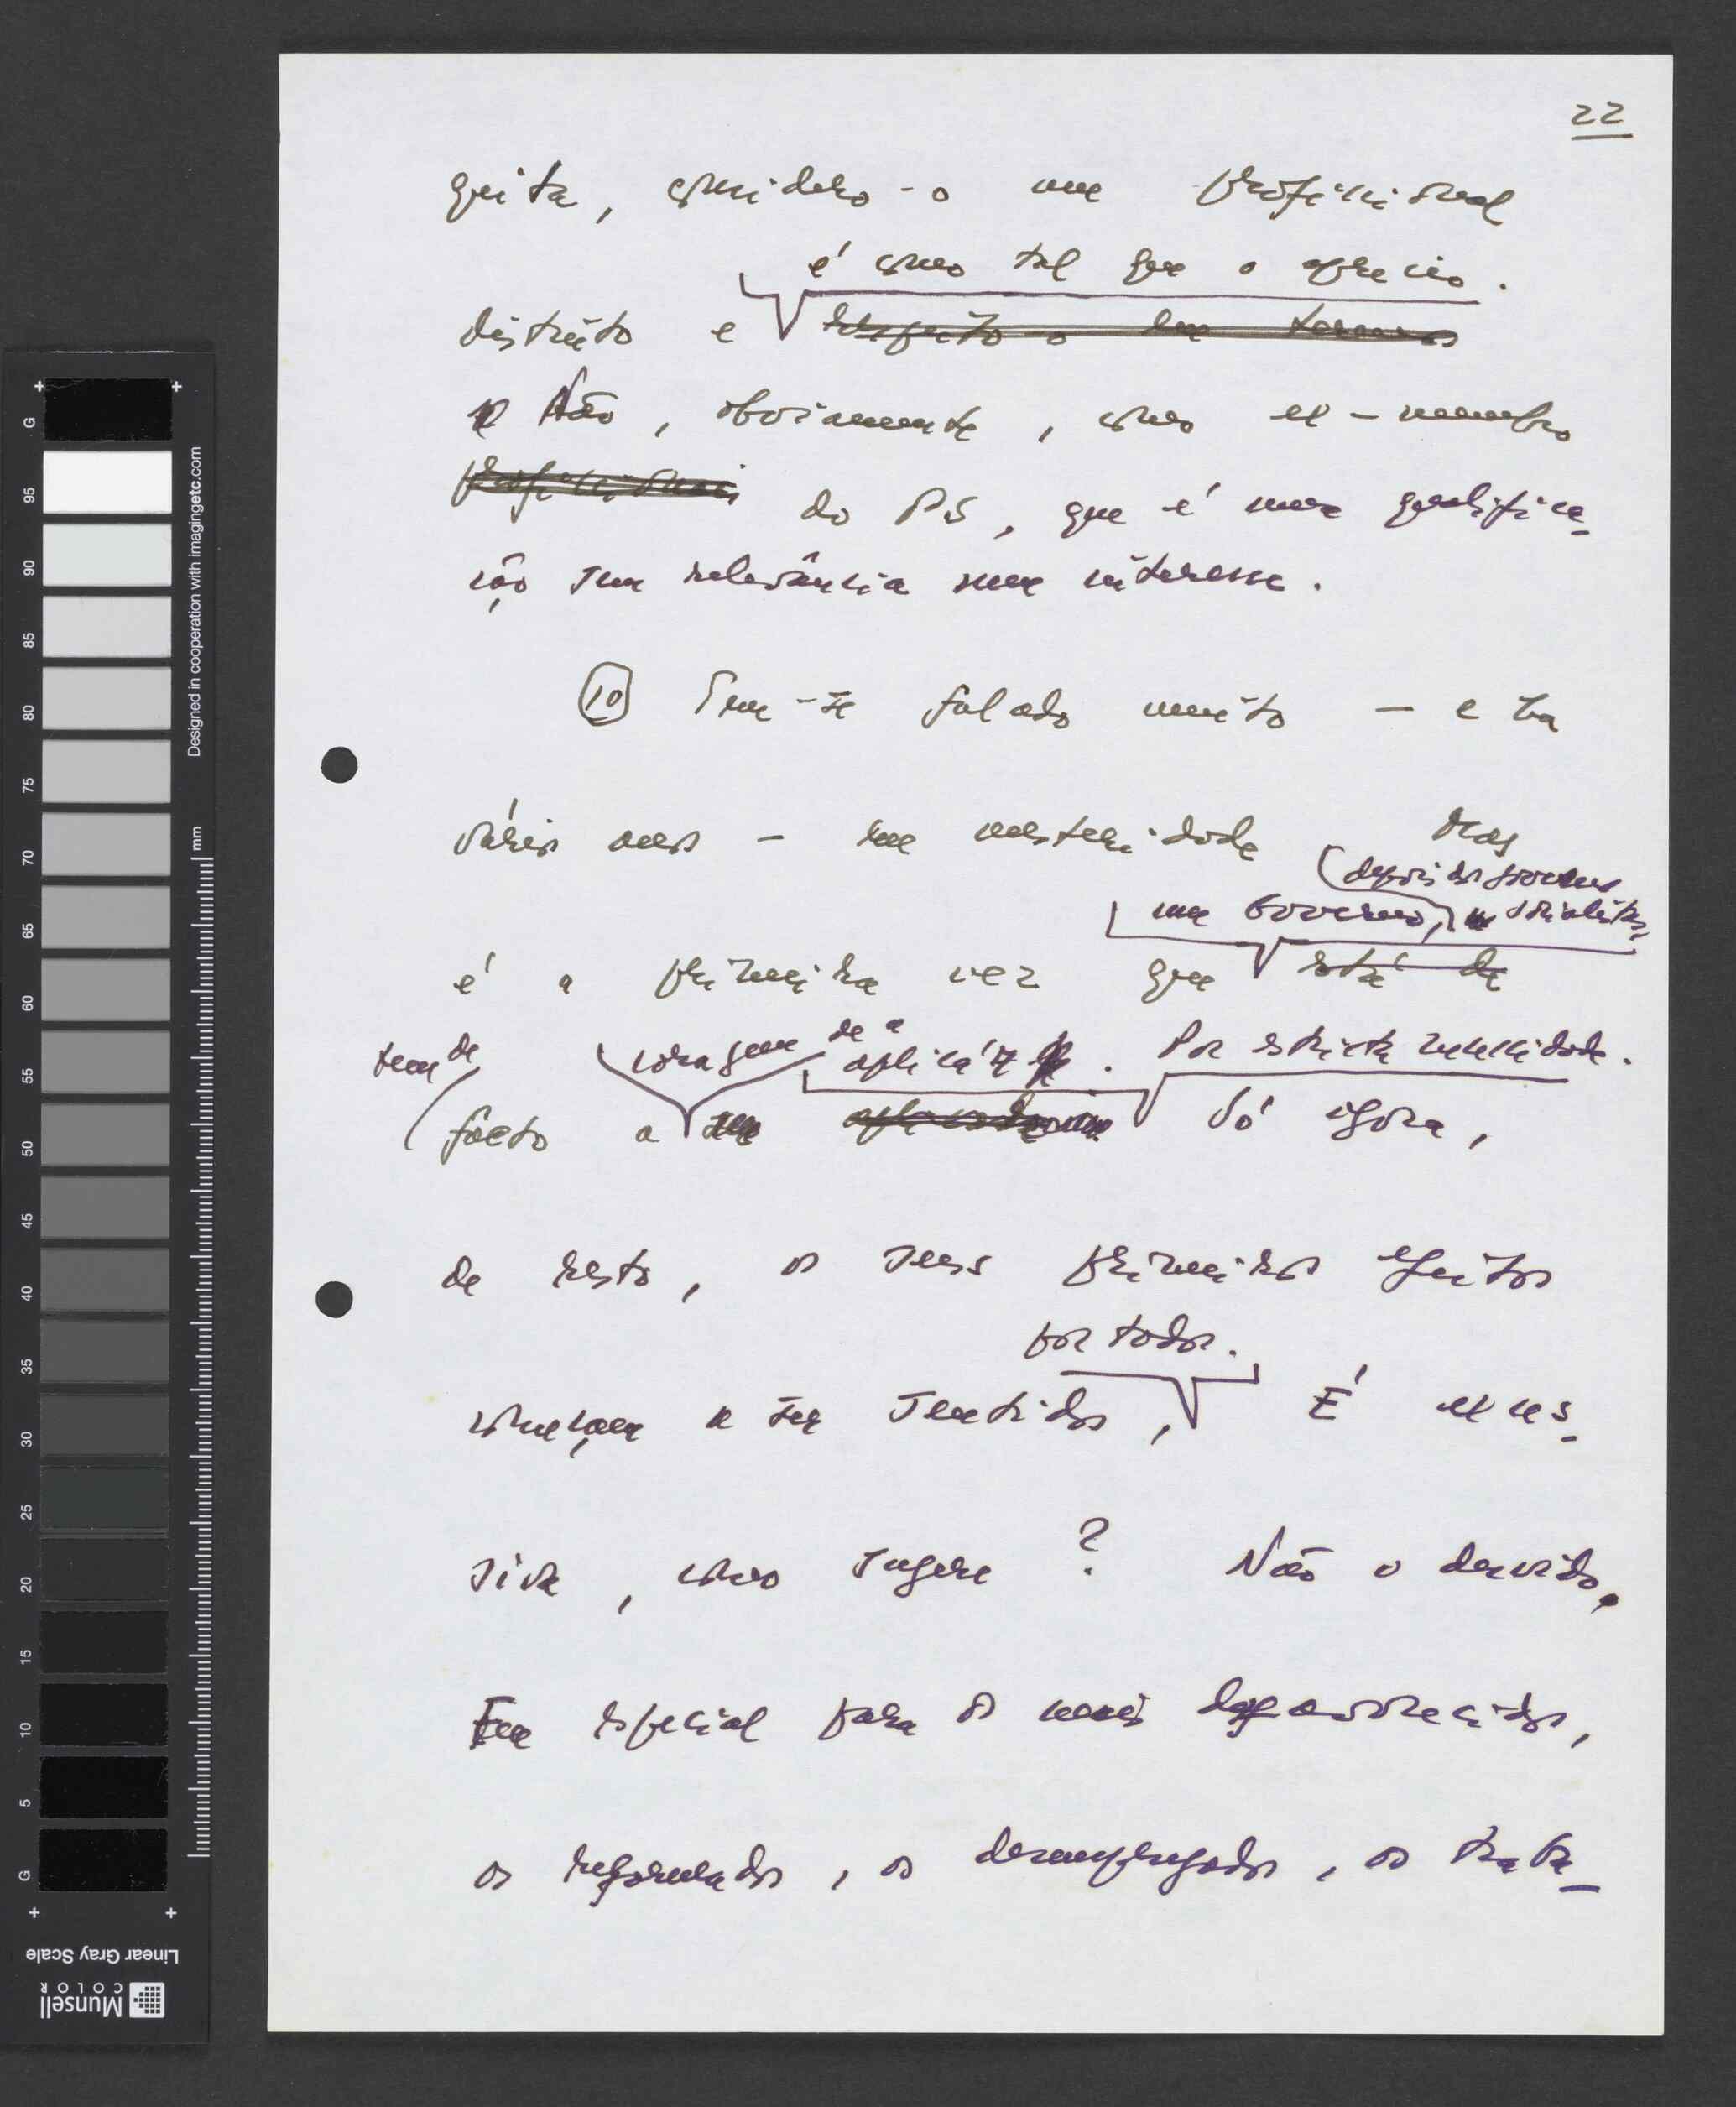 22
guita, considero-o um profissional
é como tal que o aprecio.
distinto e respeito-o em termos
Não, obviamente, como ex-membro
profissionais do PS, que é uma qualifica-
ção sem relevância nem interesse.
10 Tem-se falado muito - e há
vários anos - em austeridade Mas
(depois dos governos
um Governo,) socialista,
é a primeira vez que está de
tem de coragem de a aplicar. Por estricta necessidade.
facto a ser Só agora,
de resto, os seus primeiros efeitos
por todos.
começam a ser sentidos, É exces-
siva, como sugere? Não o duvido,
Em especial para os mais desfavorecidos,
os reformados, os desempregados, os traba-
Designed in cooperation with imagingetc.com
mm
G 95 90 85 80 75 70 65 60 55 50 45 40 35 30 25 20 15 10 5 G
Linear Gray Scale
Munsell
COLOR